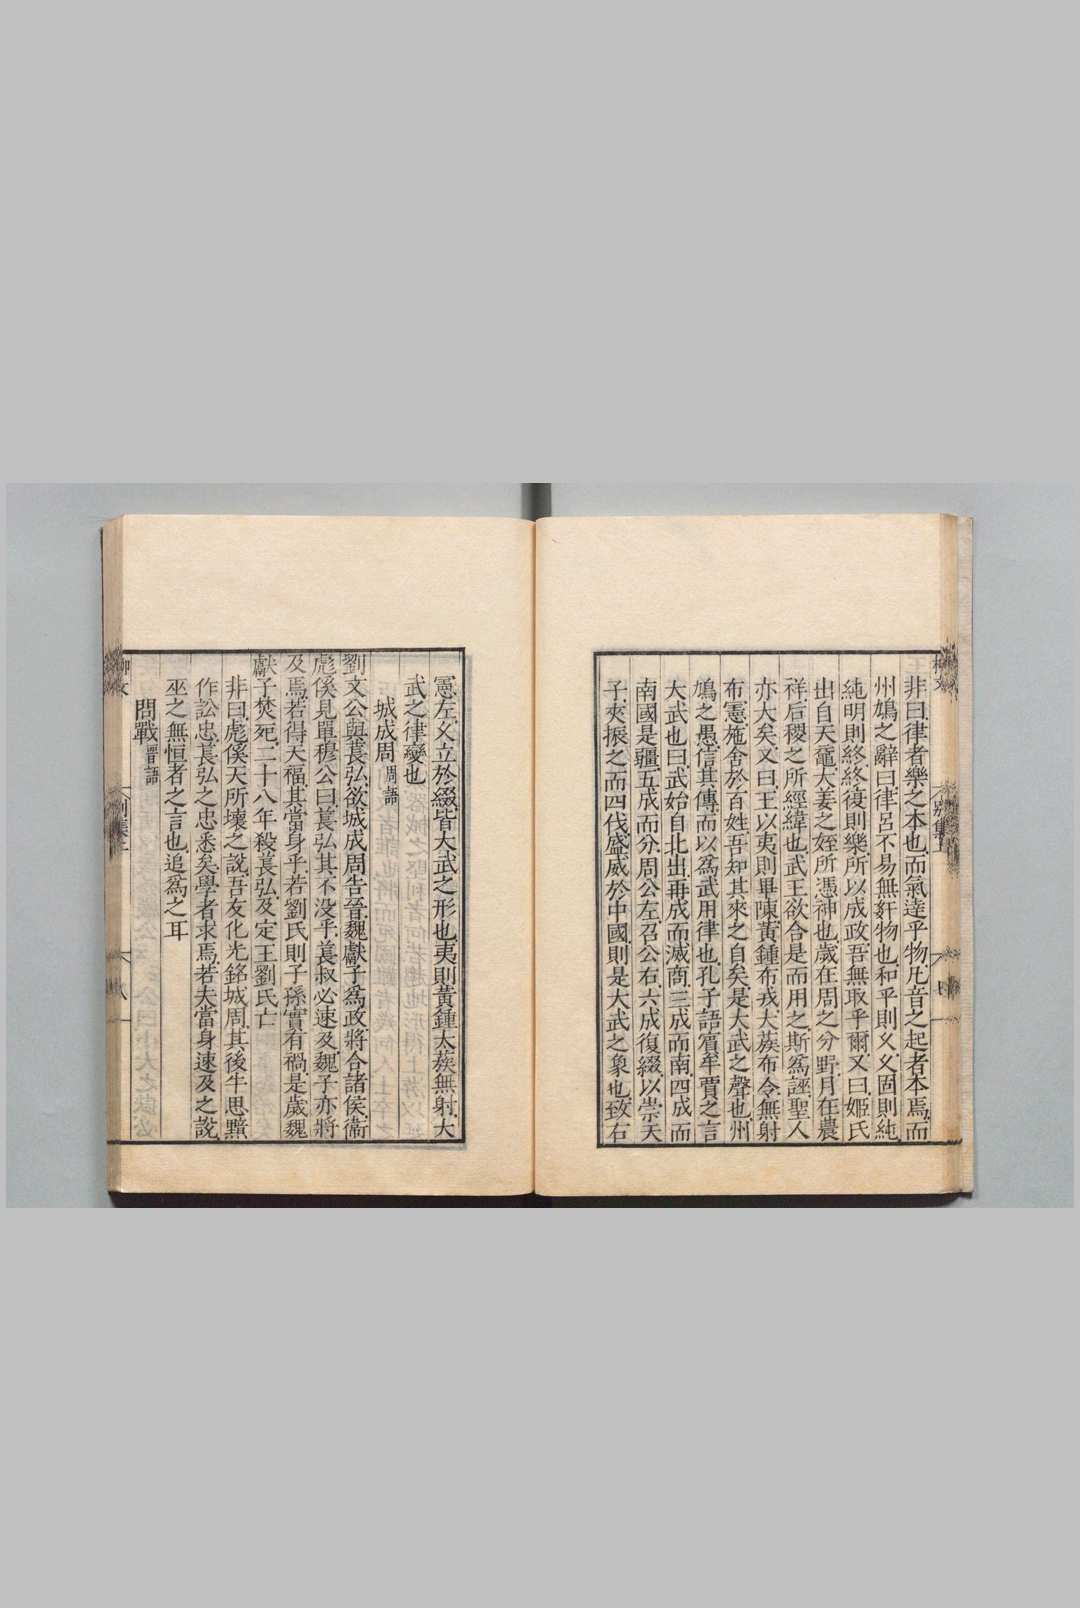 非曰律者樂之本也而氣達乎物凡音之起者本焉而
州鳩之辭曰律呂不易無姧物也和平則乂乂固則純
純明則終終復則樂所以成政吾無取乎爾又曰姬氏
出自天黿大姜之姪所憑神也歲在周之分野月在農
祥后稷之所經緯也武王欲合是而用之斯爲誣聖人
亦大矣又曰王以夷則畢陳黃鍾布戎大蔟布令無射
布憲施舍於百姓吾知其來之自矣是大武之聲也州
鳩之愚信其傳而以爲武用律也孔子語賓牟賈之言
大武也曰武始自北出再成而滅商三成而南四成而
南國是疆五成而分周公左召公右六成復綴以崇天
子夾振之而四伐盛威於中國則是大武之象也致右
憲左乂立於綴皆大武之形也夷則黃鍾太蔟無射大
武之律變也
城成周 周語
劉文公與萇弘欲城成周告晉魏獻子爲政將合諸侯衞
彪傒見單穆公曰萇弘其不没乎萇叔必速及魏子亦將
及焉若得天福其當身乎若劉氏則子孫實有禍是歲魏
獻子焚死二十八年殺萇弘及定王劉氏亡
非曰彪傒天所壞之說吾友化光銘城周其後牛思黯
作訟忠萇弘之忠悉矣學者求焉若夫當身速及之說
巫之無恒者之言也追爲之耳
問戰 晉語
柳文
別集上
八